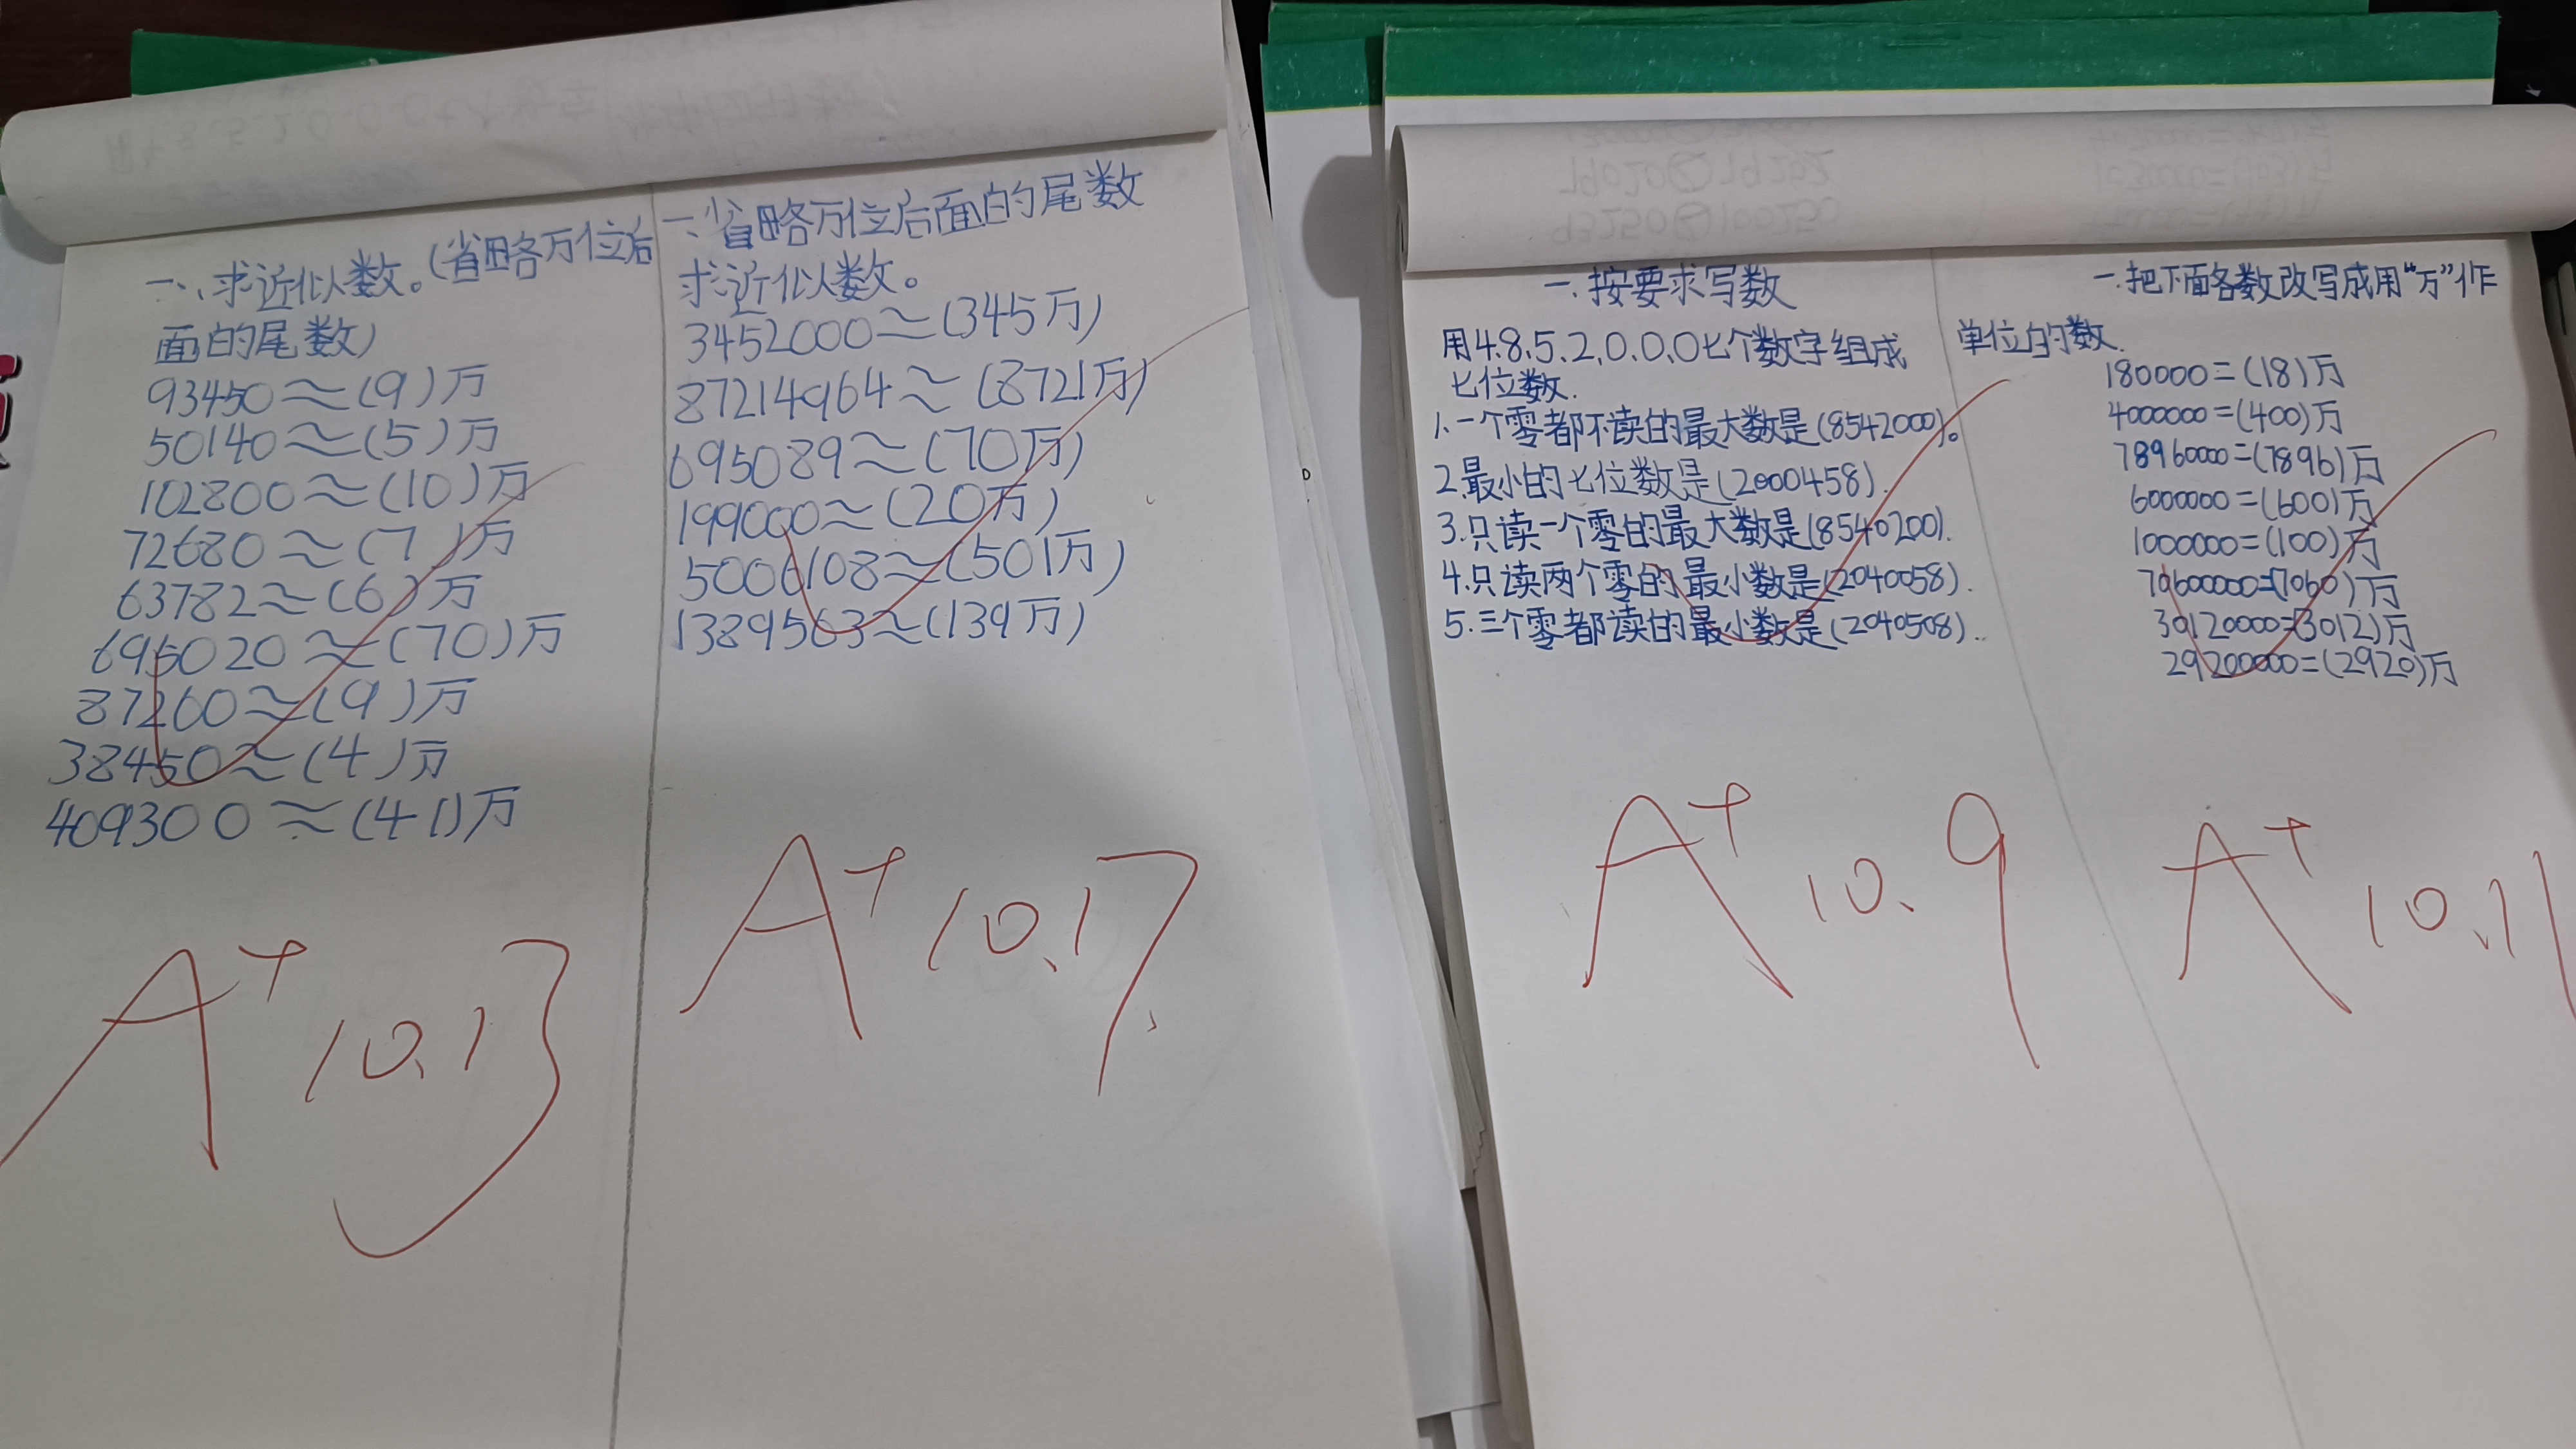 一、求近似数。(省略万位后
面的尾数)
93450≈(9)万
50140≈(5)万
102800≈(10)万
72680≈(7)万
63782≈(6)万
695020≈(70)万
87260≈(9)万
38450≈(4)万
409300≈(41)万
A+ 10.13
一、省略万位后面的尾数
求近似数。
3452000≈(345万)
87214964≈(8721万)
695089≈(70万)
199000≈(20万)
5006108≈(501万)
1389563≈(139万)
A+ 10.17
一.按要求写数
用4.8.5.2.0.0.0七个数字组成
七位数.
1.一个零都不读的最大数是(8542000)。
2.最小的七位数是(2000458).
3.只读一个零的最大数是(8540200).
4.只读两个零的最小数是(2040058).
5.三个零都读的最小数是(2040508).
A+ 10.9
一.把下面各数改写成用“万”作
单位的数.
180000=(18)万
4000000=(400)万
78960000=(7896)万
6000000=(600)万
1000000=(100)万
70600000=(7060)万
30120000=(3012)万
29200000=(2920)万
A+ 10.11